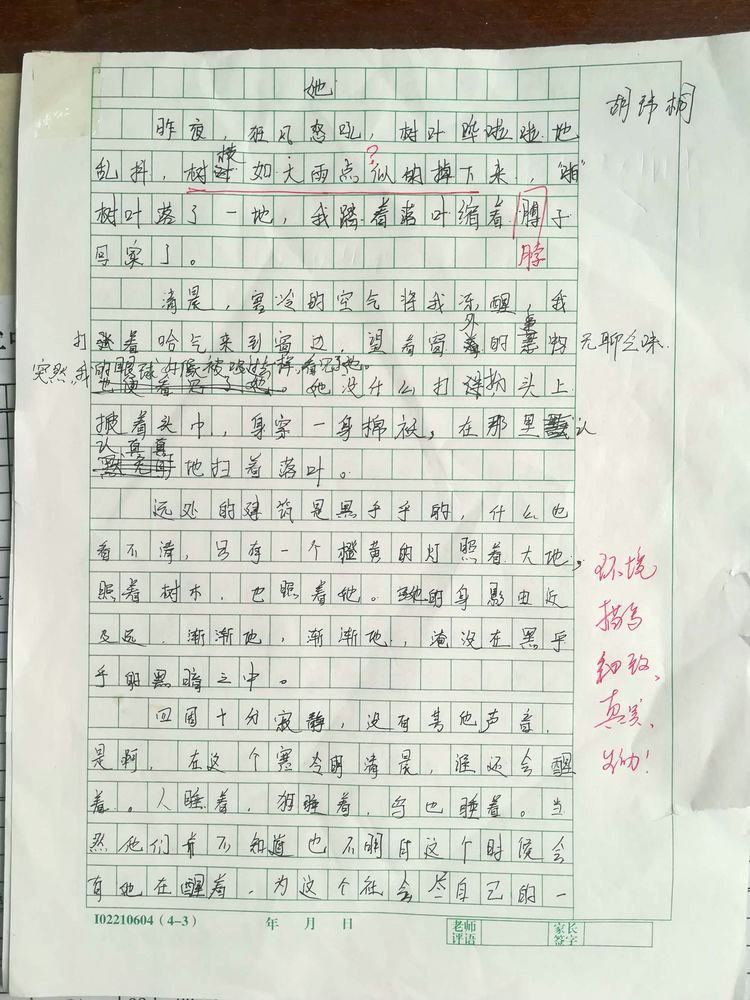 她
胡玮桐
昨夜，狂风怒吼，树叶哗啦啦地
乱抖，树枝如大雨点似的掉下来，"啪"
？
树叶落了一地，我踏着落叶缩着膊子
回家了。
脖
清晨，寒冷的空气将我冻醒，我
打着哈气来到窗边，望着窗外的事物无聊之味
突然，我的眼球好像被吸过去样，看见了她。
她没什么打扮，头上
披着头巾，身穿一身棉袄，在那里认
认真真地扫着落叶。
远处的建筑是黑乎乎的，什么也
看不清，只有一个橙黄的灯照着大地，
照着树木，也照着她。她的身影由近
及远，渐渐地，渐渐地，淹没在黑乎
乎的黑暗之中。
四周十分寂静，没有其他声音，
是啊，在这个寒冷的清晨，谁还会醒
着。人睡着，狗睡着，鸟也睡着。当
然他们前不知道也不明白这个时候会
有她在醒着，为这个社会尽自己的一
环境
描写
细致、
真实、
生动！
I02210604(4-3)
年 月 日
老师评语
家长签字